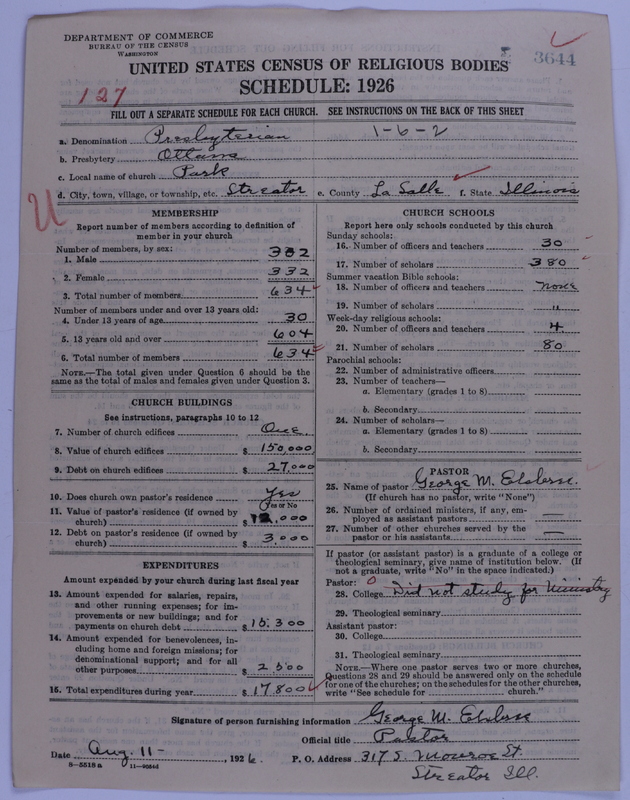 DEPARTMENT OF COMMERCE
BUREAU OF THE CENSUS
WASHINGTON
3644
UNITED STATES CENSUS OF RELIGIOUS BODIES
SCHEDULE: 1926
127
FILL OUT A SEPARATE SCHEDULE FOR EACH CHURCH. SEE INSTRUCTIONS ON THE BACK OF THIS SHEET
a. Denomination Presbyterian 1-6-2
b. Presbytery Ottawa
c. Local name of church Park
d. City, town, village, or township, etc. Streator e. County La Salle f. State Illinois
MEMBERSHIP
Report number of members according to definition of
member in your church
Number of members, by sex:
1. Male 302
2. Female 332
3. Total number of members 634
Number of members under and over 13 years old:
4. Under 13 years of age 30
5. 13 years old and over 604
6. Total number of members 634
NOTE.—The total given under Question 6 should be the
same as the total of males and females given under Question 3.
CHURCH BUILDINGS
See instructions, paragraphs 10 to 12
7. Number of church edifices One
8. Value of church edifices $ 150,000
9. Debt on church edifices $ 27,000
10. Does church own pastor's residence Yes
Yes or No
11. Value of pastor's residence (if owned by
church) $ 12,000
12. Debt on pastor's residence (if owned by
church) $ 3,000
EXPENDITURES
Amount expended by your church during last fiscal year
13. Amount expended for salaries, repairs,
and other running expenses; for im-
provements or new buildings; and for
payments on church debt $ 15,300
14. Amount expended for benevolences, in-
cluding home and foreign missions; for
denominational support; and for all
other purposes $ 2500
15. Total expenditures during year $ 17,800
CHURCH SCHOOLS
Report here only schools conducted by this church
Sunday schools:
16. Number of officers and teachers 30
17. Number of scholars 380
Summer vacation Bible schools:
18. Number of officers and teachers none
19. Number of scholars "
Week-day religious schools:
20. Number of officers and teachers 4
21. Number of scholars 80
Parochial schools:
22. Number of administrative officers
23. Number of teachers—
a. Elementary (grades 1 to 8)
b. Secondary
24. Number of scholars—
a. Elementary (grades 1 to 8)
b. Secondary
PASTOR
25. Name of pastor George M.
(If church has no pastor, write "None")
26. Number of ordained ministers, if any, em-
ployed as assistant pastors —
27. Number of other churches served by the
pastor or his assistants —
If pastor (or assistant pastor) is a graduate of a college or
theological seminary, give name of institution below. (If
not a graduate, write "No" in the space indicated.)
Pastor: 0
28. College Did not study for Ministry
29. Theological seminary
Assistant pastor:
30. College
31. Theological seminary
NOTE.—Where one pastor serves two or more churches,
Questions 28 and 29 should be answered only on the schedule
for one of the churches; on the schedules for the other churches,
write "See schedule for church."
Signature of person furnishing information George M.
Official title Pastor
Date Aug. 11-, 1926. P. O. Address 317 S. Monroe St.
8-5518a 11-9584d Streator Ill.